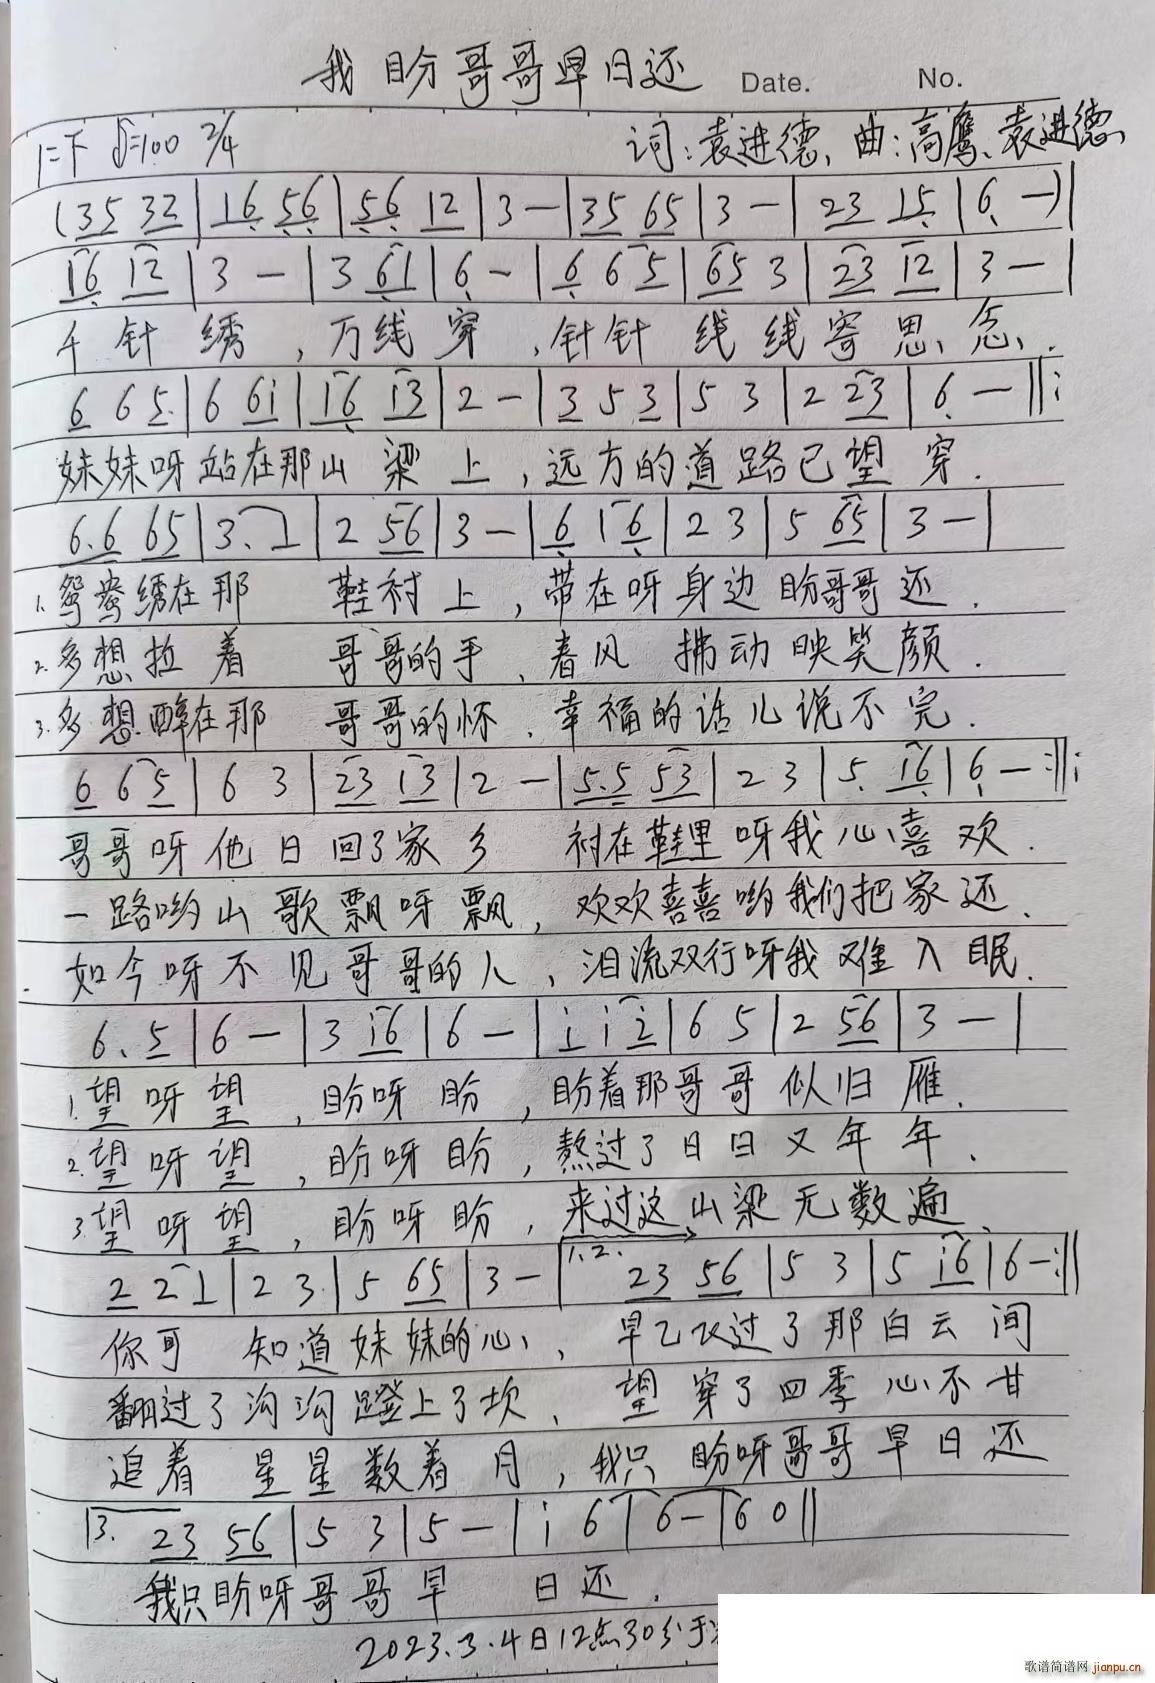 我盼哥哥早日还 Date. No.
1=下 ♩=100 2/4 词:袁进德、曲:高鹰、袁进德
(35 32|16 56|56 12|3—|35 65|3—|23 15|6—)|
16 12|3—|3 61|6—|6 6 5|65 3|23 12|3—|
千针绣,万线穿,针针线线寄思念.
6 6 5|6 6i|16 13|2—|3 5 3|5 3|2 23|6—‖:
妹妹呀站在那山梁上,远方的道路已望穿.
6.6 65|3. 1|2 56|3—|6 1 6|2 3|5 65|3—|
1.鸳鸯绣在那鞋衬上,带在呀身边盼哥哥还.
2.多想拉着哥哥的手,春风拂动映笑颜.
3.多想醉在那哥哥的怀.幸福的话儿说不完.
6 6 5|6 3|23 13|2—|5.5 53|2 3|5. 16|6—:‖:
哥哥呀他日回了家乡 衬在鞋里呀我心喜欢.
一路哟山歌飘呀飘,欢欢喜喜哟我们把家还.
如今呀不见哥哥的人,泪流双行呀我难入眠.
6. 5|6—|3 i6|6—|i i 2|6 5|2 56|3—|
1.望呀望,盼呀盼,盼着那哥哥似归雁.
2.望呀望,盼呀盼,熬过了日日又年年.
3.望呀望,盼呀盼,来过这山梁无数遍
2 2 1|2 3|5 65|3—|1.2. 23 56|5 3|5 i6|6—:‖
你可知道妹妹的心,早已飞过了那白云间
翻过了沟沟蹬上了坎、望穿了四季心不甘
追着星星数着月,我只盼呀哥哥早日还
3. 23 56|5 3|5—|i 6|6—|6 0‖
我只盼呀哥哥早日还.
2023.3.4日12点30分于
歌谱简谱网 jianpu.cn